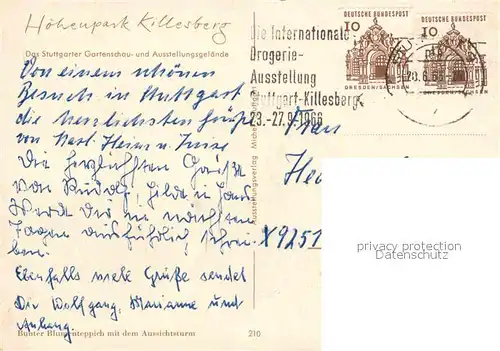 Höhenpark Killesberg
Das Stuttgarter Gartenschau- und Ausstellungsgelände
Die Internationale
Drogerie-
Ausstellung
Stuttgart-Killesberg
23.-27.9.1966
DEUTSCHE BUNDESPOST
10
DRESDEN/SACHSEN
DEUTSCHE BUNDESPOST
10
DRESDEN/SACHSEN
Von einem schönen
Besuch in Stuttgart
die herzlichsten Grüße
von
Die herzlichsten Grüße
von Hilde
Werd Dir die nächsten
Tagen ausführlich schrei-
ben.
Ebenfalls viele Grüße sendet
Dir Wolfgang, Marianne und
Anhang.
Frau
X9251
privacy protection
Bunter Blumenteppich mit dem Aussichtsturm
210